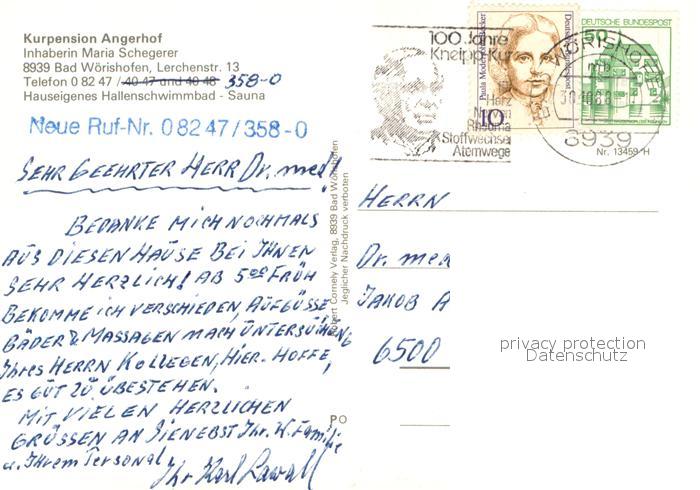 Kurpension Angerhof
Inhaberin Maria Schegerer
8939 Bad Wörishofen, Lerchenstr. 13
Telefon 0 82 47 / 40 47 und 40 48 358-0
Hauseigenes Hallenschwimmbad - Sauna
Neue Ruf-Nr. 0 82 47 / 358 - 0
SEHR GEEHRTER HERR Dr. med!
BEDANKE MICH NOCHMALS
AUS DIESEN HAUSE BEI IHNEN
SEHR HERZLICH! AB 5 00 FRÜH
BEKOMME ICH VERSCHIEDEN, AUFGÜSSE
BÄDER & MASSAGEN NACH UNTERSUCHUNG
Ihres HERRN KOLLEGEN, HIER. HOFFE,
ES GUT ZU ÜBESTEHEN.
MIT VIELEN HERZLICHEN
GRÜSSEN AN SIE NEBST Ihr. W. Familie
u. Ihrem Personal
Ihr Karl Lawall
Robert Cornely Verlag, 8939 Bad Wörishofen
Jeglicher Nachdruck verboten
PO
100 Jahre
Kneipp-Kur
Herz
Nerven
Rheuma
Stoffwechsel
Atemwege
Paula Modersohn-Becker
Deutsche Bundespost
10
DEUTSCHE BUNDESPOST
50
WÖRISHOFEN
mb
8939
Nr. 13459 H
HERRN
Dr. med
JAKOB A
6500
privacy protection
Datenschutz